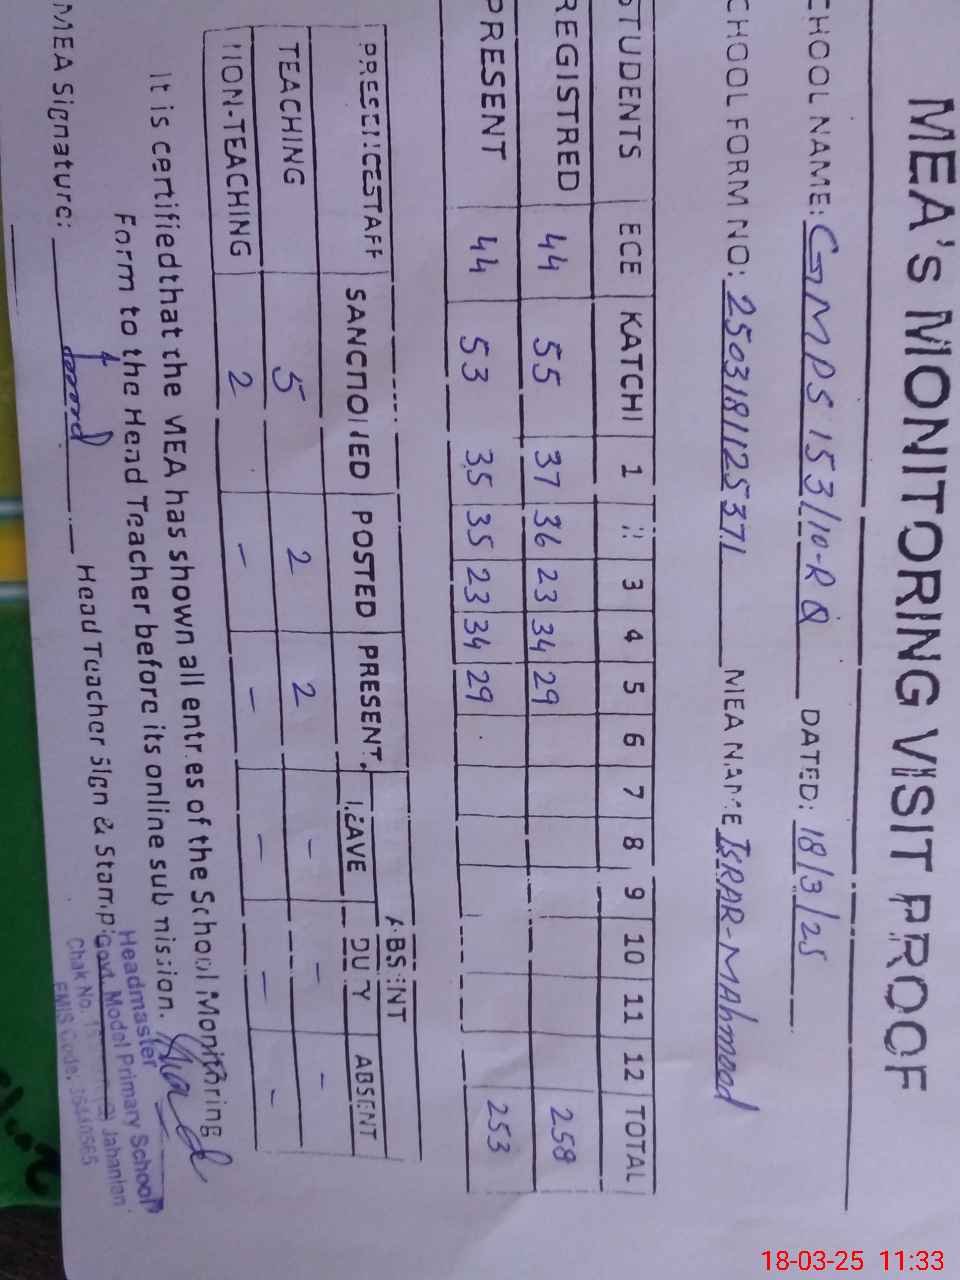 MEA's MONITORING VISIT PROOF
CHOOL NAME: GMPS 153/10-R DATED: 18/3/25
CHOOL FORM NO: 250318112537 MEA NAME ISRAR-MAHMOOD
STUDENTS ECE KATCHI 1 2 3 4 5 6 7 8 9 10 11 12 TOTAL
REGISTRED 44 55 37 36 23 34 29 258
PRESENT 44 53 35 35 23 34 29 253
ABSENT
PRESENCE STAFF SANCTIONED POSTED PRESENT LEAVE DUTY ABSENT
TEACHING 5 2 2 - - -
NON-TEACHING 2 - - - - -
It is certified that the MEA has shown all entries of the School Monitoring
Form to the Head Teacher before its online submission.
MEA Signature: Head Teacher Sign & Stamp:
Headmaster
Govt. Model Primary School
Chak No. Jahanian
EMIS Code:
18-03-25 11:33